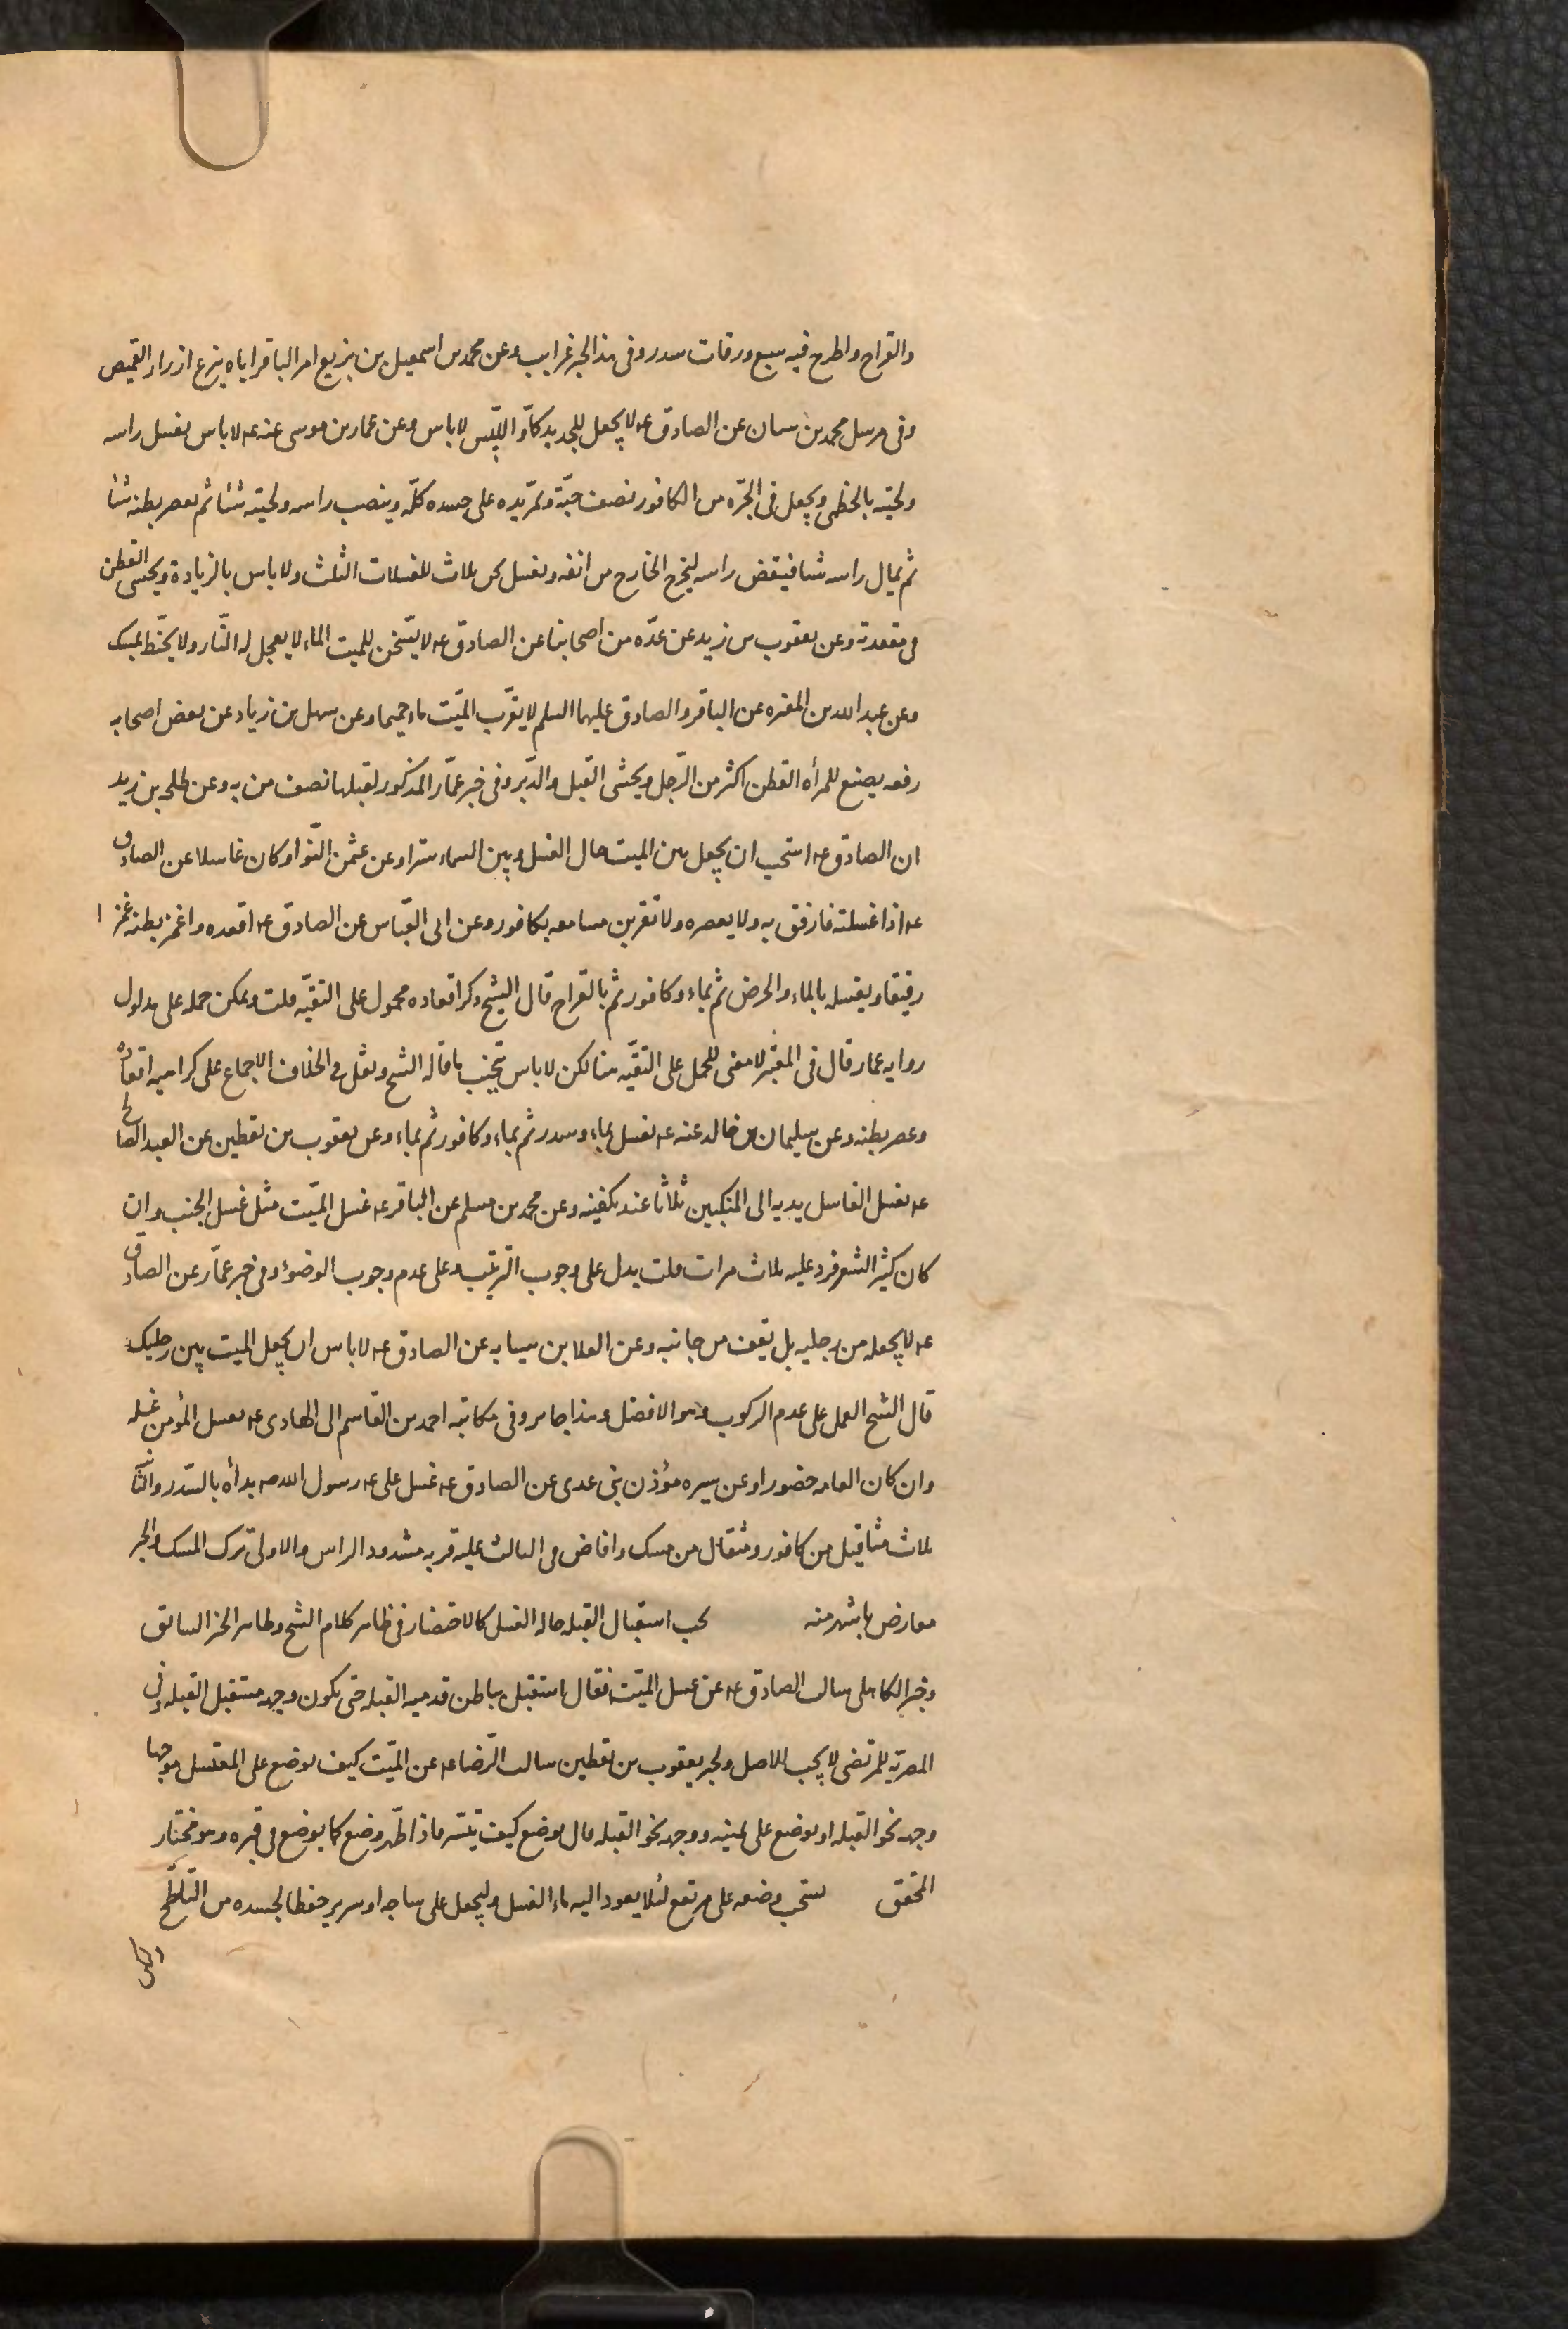 والقراح واطرح فيه سبع ورقات سدر وفى هذا الخبر غرايب وعن محمد بن اسمعيل بن بزيع امر الباقر اياه ينزع ازرار القميص
وفى مرسل محمد بن سنان عن الصادق عه لا يجعل للجديد كمّا واللبّيس لا باس وعن عمار بن موسى عنه عه لا باس يغسل راسه
ولحيته بالخطمى ويجعل فى الجرّه من الكافور نصف حبّة وتمرّ يده على جسده كلّه وينصب راسه ولحيته شيئا ثم يعصر بطنه شيئا
ثم يمال راسه شيئا فينفض راسه ليخرج الخارج من انفه ويغسل بثلاث للغسلات الثلث ولا باس بالزيادة ويحشى القطن
فى مقعدته وعن يعقوب بن زيد عن عدّه من اصحابنا عن الصادق عه لا يسّخن للميت الماء لا يعجل له النّار ولا يحنّط بمسك
وعن عبد الله بن المغيره عن الباقر والصادق عليهما السلم لا يقرّب الميّت ماء حميما وعن سهل بن زياد عن بعض اصحابه
رفعه يصنع للمرأه القطن اكثر من الرّجل ويحشى القبل والدّبر وفى خبر عمّار المذكور لقبلها نصف من به وعن طلحه بن زيد
ان الصادق عه استحب ان يجعل بين الميت حال الغسل وبين السماء سترا وعن عثمن النّوا وكان غاسلا عن الصادق
عه اذا غسلته فارفق به ولا يعصره ولا تقربن مسامعه بكافور وعن ابى العبّاس عن الصادق عه اقعده واغمز بطنه غمزا
رفيقا ويغسله بالماء والحرض ثم بماء وكافور ثم بالقراح قال الشيخ ذكر اقعاده محمول على التقيّه قلت ويمكن حمله على مدلول
روايه عمار قال فى المعتبر لا معنى للحمل على التقيّه هنا لكن لا باس بتجنّب ما قاله الشيخ ونقل فى الخلاف الاجماع على كراهيه اقعاده
وعصر بطنه وعن سليمان بن خالد عنه عه يغسل بماء وسدر ثم بماء وكافور ثم بماء وعن يعقوب بن يقطين عن العبد الصالح
عه يغسل الغاسل يديه الى المنكبين ثلاثا عند تكفينه وعن محمد بن مسلم عن الباقر عه غسل الميّت مثل غسل الجنب وان
كان كثير الشعر فرد عليه ثلاث مرات قلت يدل على وجوب الترتيب وعلى عدم وجوب الوضوء وفى خبر عمّار عن الصادق
عه لا يجعله من رجليه بل يقف من جانبه وعن العلا بن سيابه عن الصادق عه لا باس ان يجعل الميت بين رجليك
قال الشيخ العمل على عدم الركوب وهو الافضل وهذا جايز وفى مكاتبه احمد بن القاسم الى الهادى عه يغسل المؤمن غسله
وان كان العامه حضورا وعن مؤذن بنى عدى عن الصادق عه غسل على عه رسول الله صه بدأه بالسّدر والثانيه
ثلاث مثاقيل من كافور ومثقال من مسك وافاض فى الثالث عليه قربه مشدود الراس والاولى ترك المسك والخبر
معارض باشهر منه يجب استقبال القبله حاله الغسل كالاحتضار فى ظاهر كلام الشيخ وظاهر الخبر السابق
وخبر الكاهلى سالت الصادق عه عن غسل الميّت فقال استقبل بباطن قدميه القبله حتى يكون وجهه مستقبل القبله وفى
المصريّه للمرتضى لا يجب للاصل ولخبر يعقوب بن يقطين سالت الرّضا عه عن الميّت كيف يوضع على المغتسل موجها
وجهه نحو القبله او يوضع على يمينه ووجهه نحو القبله قال يوضع كيف تيسّر فاذا طهّر وضع كما يوضع فى قبره وهو مختار
المحقق يستحب وضعه على مرتفع لئلا يعود اليه ماء الغسل وليجعل على ساجه او سرير حفظا لجسده من التلطّخ